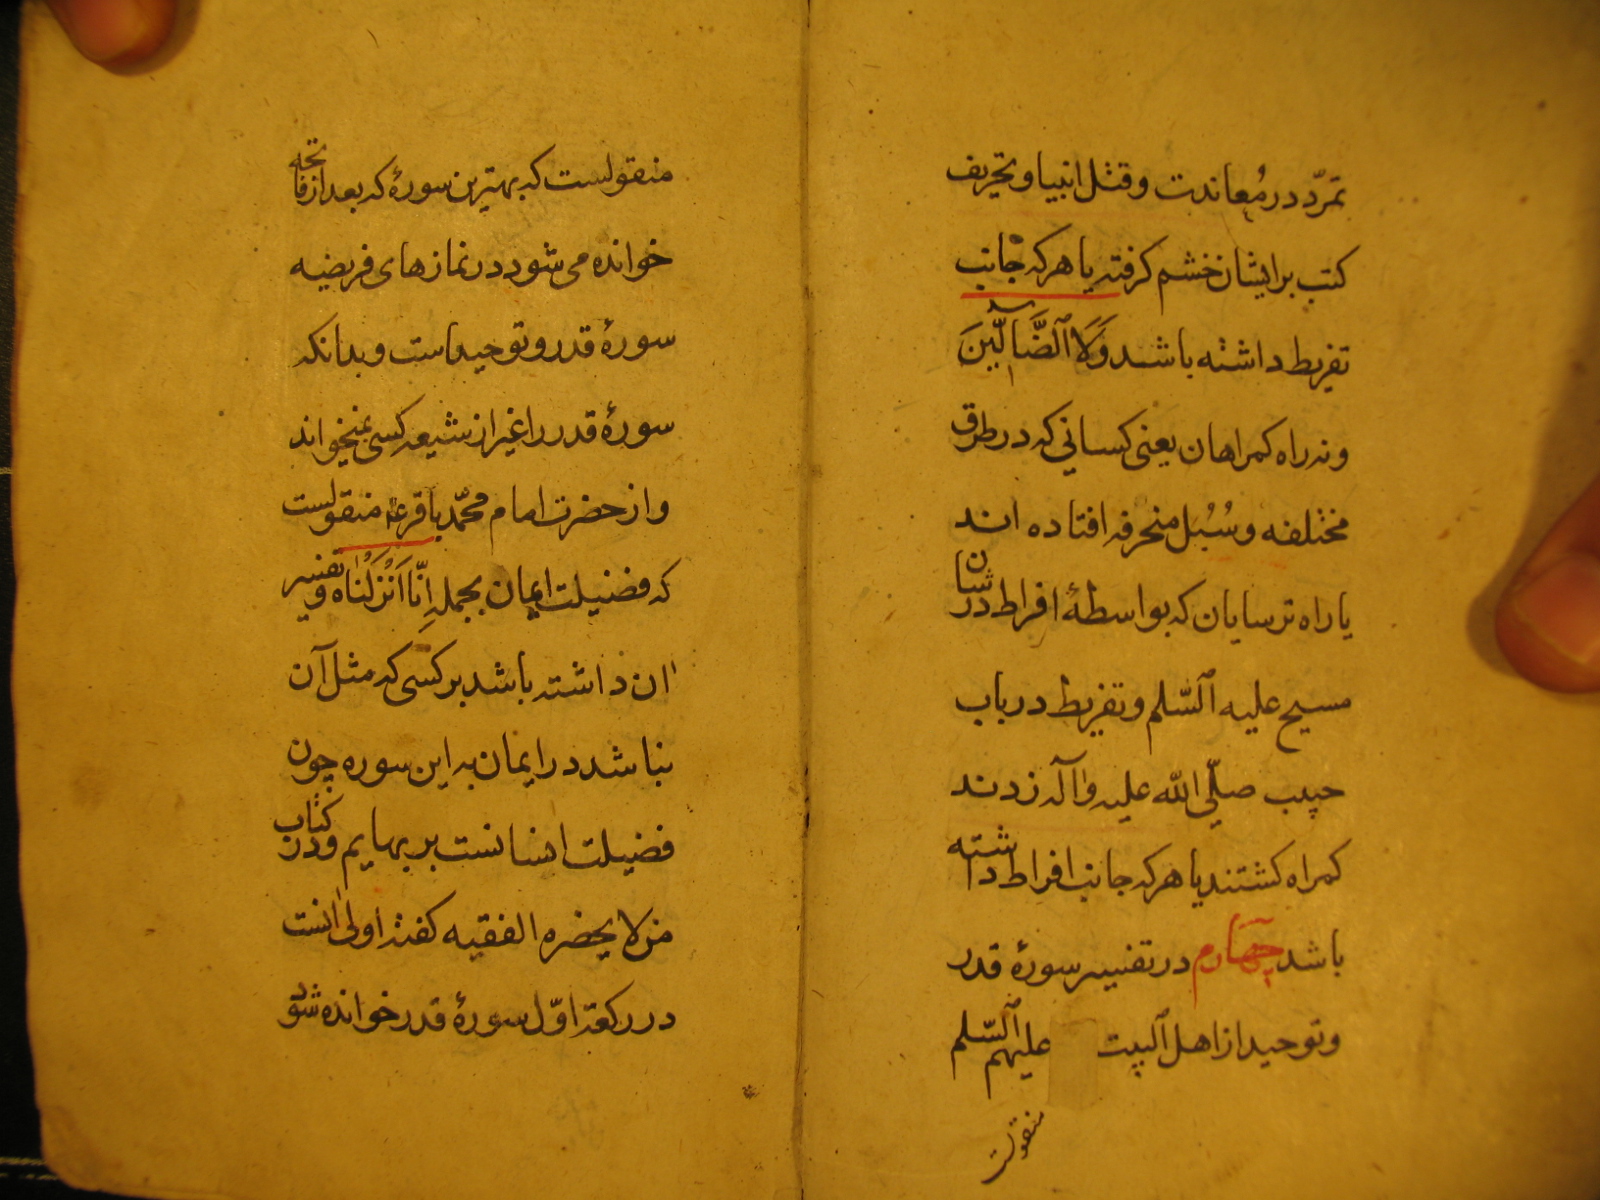 تمرّد در مُعاندت و قتل انبیا و تحریف
کتب بر ایشان خشم کرفته یا هر که جانب
تفریط داشته باشد وَلَا ٱلضَّآلّینَ
و نه راه کمراهان یعنی کسانی که در طرق
مختلفه و سُبُل منحرفه افتاده اند
یا راه ترسایان که بواسطهٔ افراط در شان
مسیح علیه ٱلسّلم و تفریط در باب
حبیب صلّی اللّه علیه و آله زدند
کمراه کشتند یا هر که جانب افراط داشته
باشد چهارم در تفسیر سورهٔ قدر
و توحید از اهل ٱلبیت علیهم ٱلسّلم
منقولست
منقولست که بهترین سورهٔ که بعد از فاتحه
خوانده می شود در نمازهای فریضه
سورهٔ قدر و توحید است و بدانکه
سورهٔ قدر را غیر از شیعه کسی نمیخواند
و از حضرت امام محمّد باقر ع منقولست
که فضیلت ایمان بجمله اِنّا اَنْزَلْنٰاه و تفسیر
ان داشته باشد بر کسی که مثل آن
نباشد در ایمان به این سوره چون
فضیلت انسانست بر بهایم و در کتاب
من لا یحضره الفقیه کفته اولی انست
در رکعت اوّل سورهٔ قدر خوانده شود